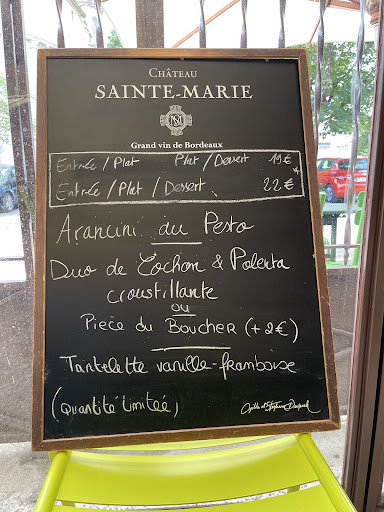 CHÂTEAU
SAINTE-MARIE
Grand vin de Bordeaux
Entrée / Plat Plat / Dessert 19€
Entrée / Plat / Dessert. 22€
Arancini au Pesto
Duo de Cochon & Polenta
croustillante
ou
Pièce du Boucher (+2€)
Tartelette vanille-framboise
(Quantité limitée)